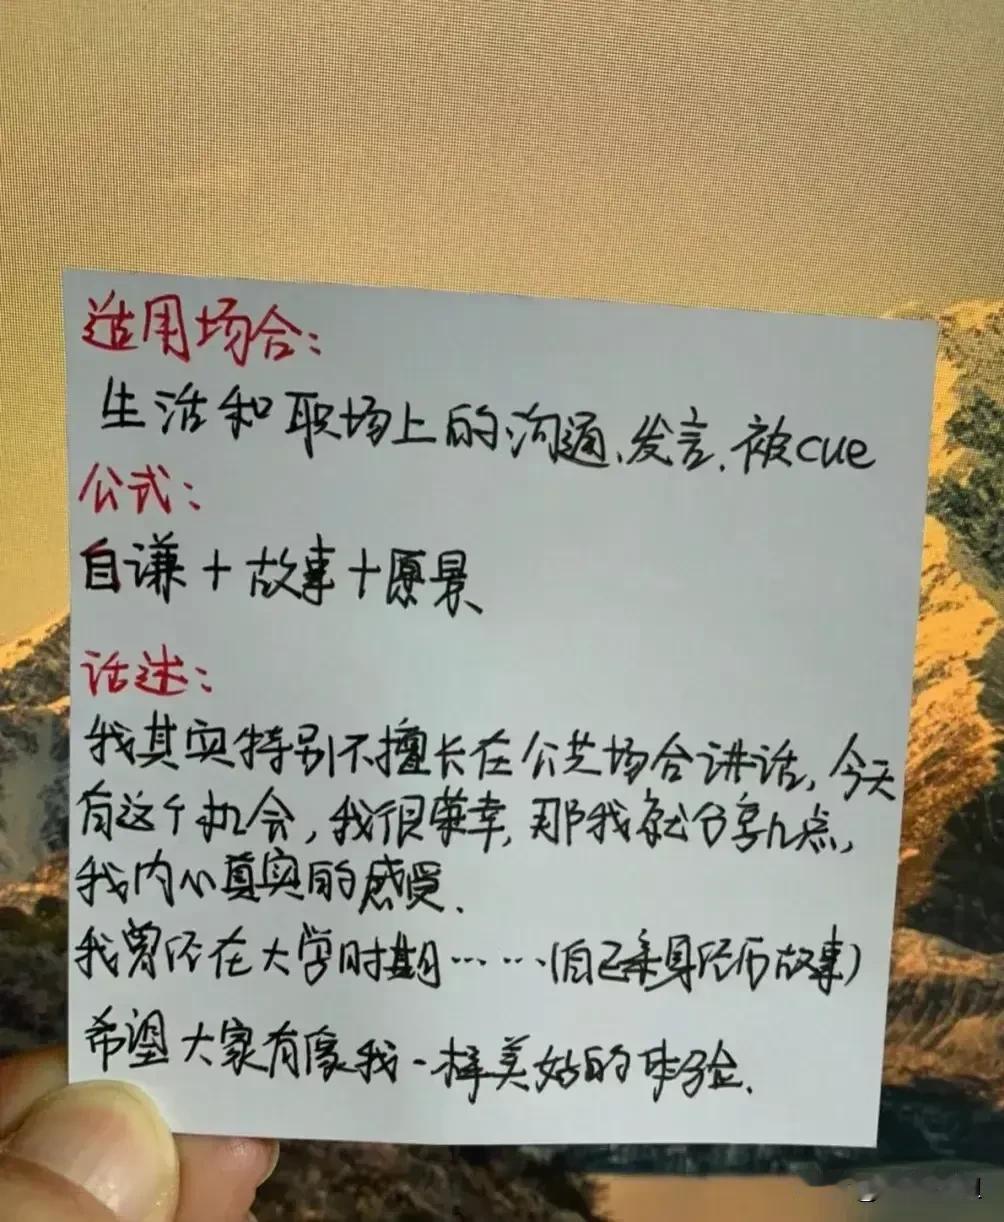 适用场合：
生活和职场上的沟通、发言、被cue
公式：
自谦＋故事＋愿景
话述：
我其实特别不擅长在公共场合讲话，今天
有这个机会，我很荣幸，那我就分享几点，
我内心真实的感受．
我曾经在大学时期……（自己亲身经历故事）
希望大家有像我一样美好的体验．